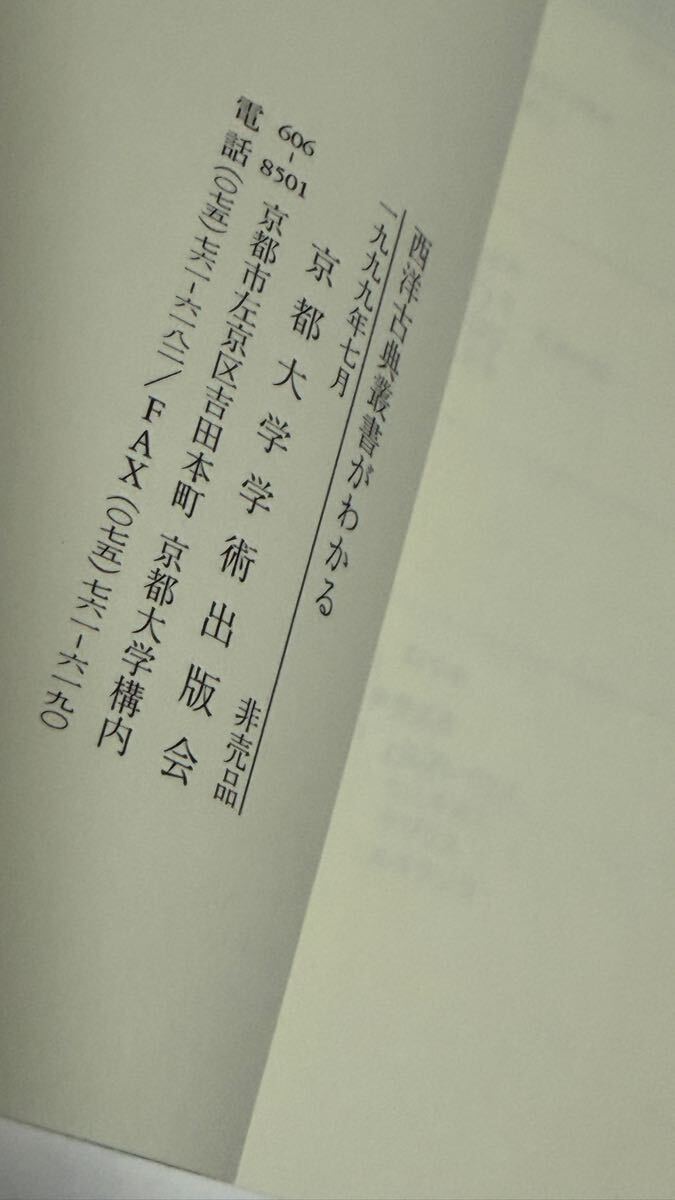 西洋古典叢書がわかる
一九九九年七月　非売品
京都大学学術出版会
606-8501 京都市左京区吉田本町 京都大学構内
電話(〇七五)七六一-六一八二/FAX(〇七五)七六一-六一九〇